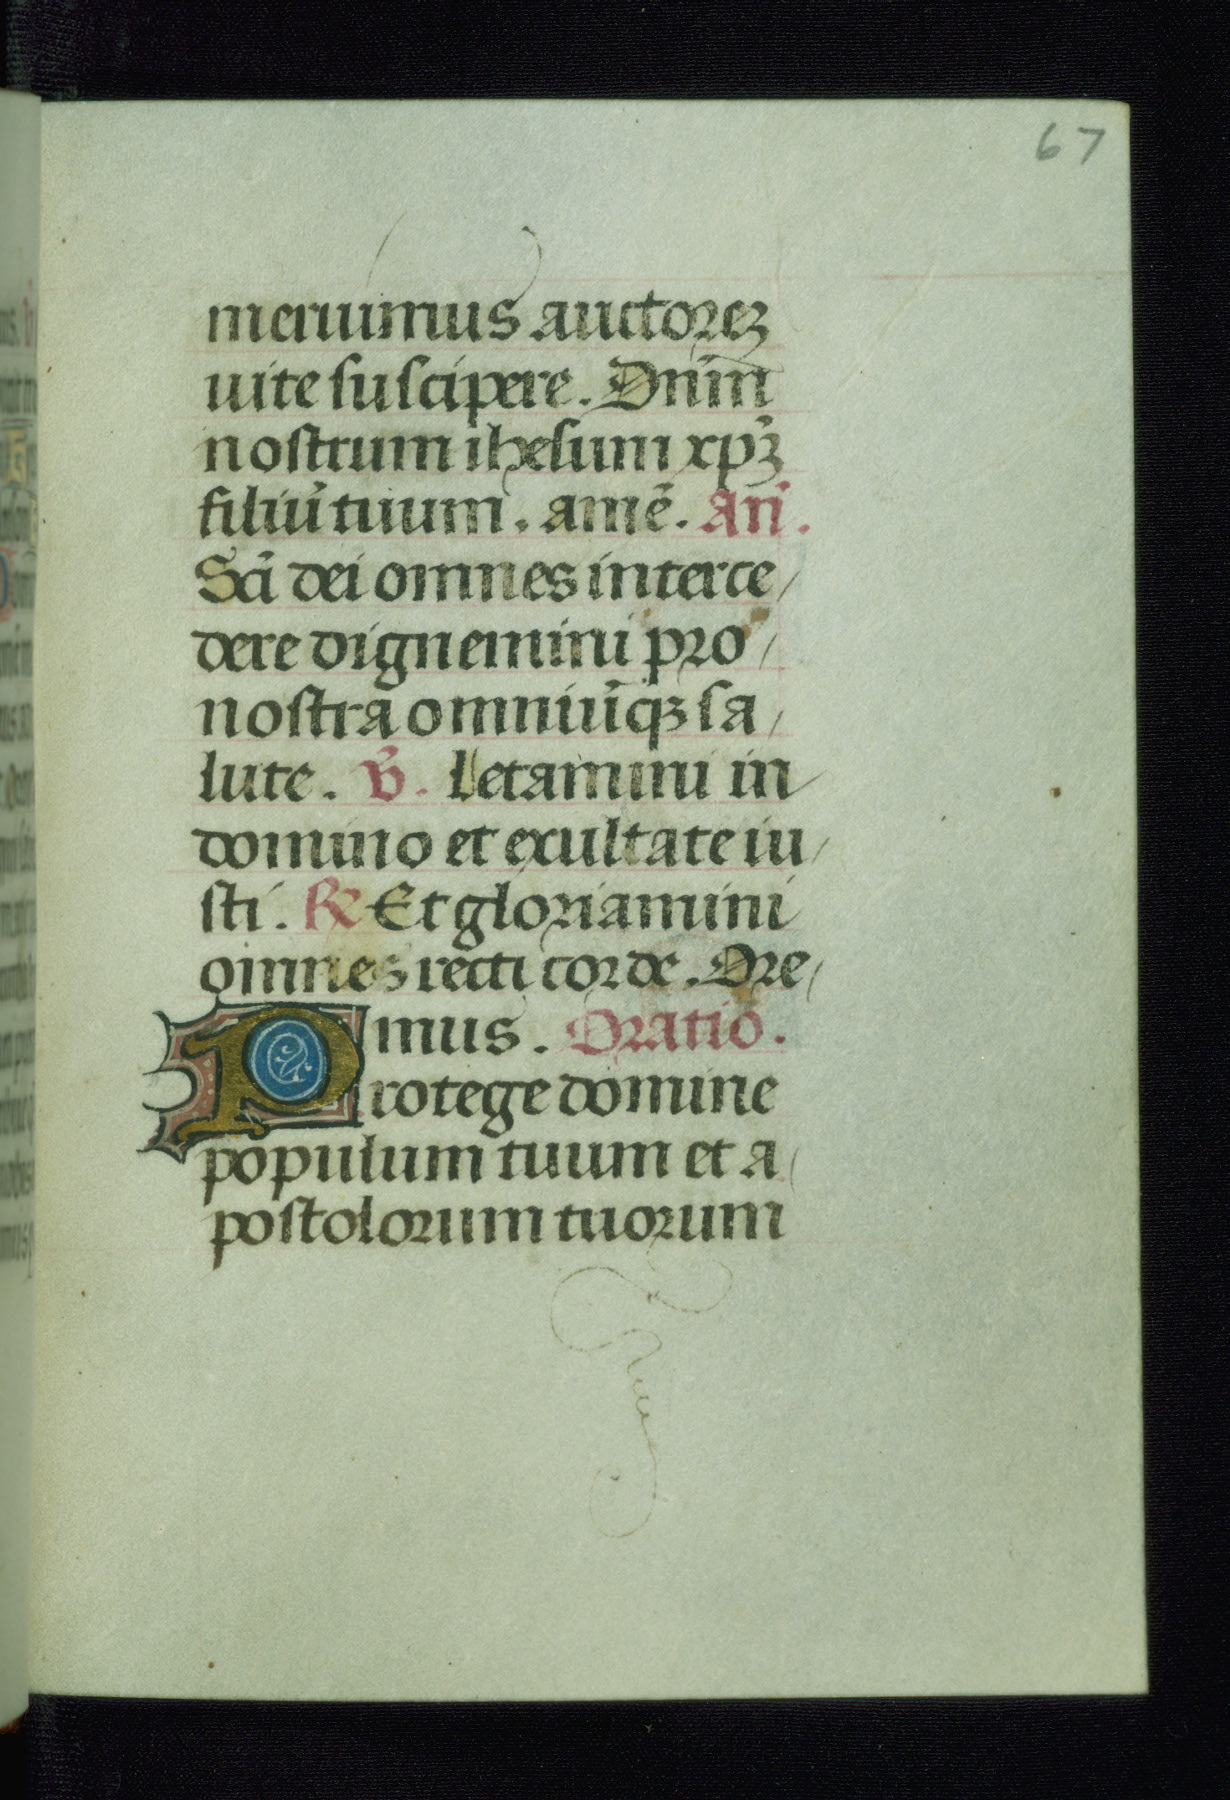 67
meruimus auctoreꝫ
uite suscipere. Dnīm
nostrum ihesum xp̄ꝫ
filiū tuum. amē. Añ.
Scī dei omnes interce/
dere dignemini pro/
nostra omniūqꝫ sa/
lute. ℣. Letamini in
domino et exultate iu/
sti. ℟ Et gloriamini
omnes recti corde. Ore/
mus. Oratio.
Protege domine
populum tuum et a/
postolorum tuorum